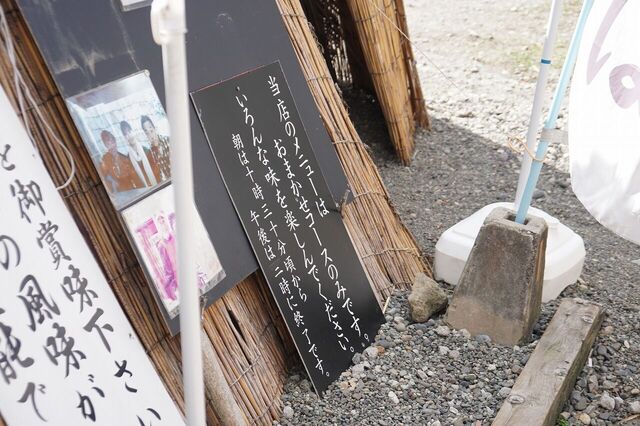 当店のメニューは
おまかせコースのみです。
いろんな味を楽しんでください。
朝は十時三十分頃から
午後は二時に終了です。
と御賞味下さい
の風味が
能で